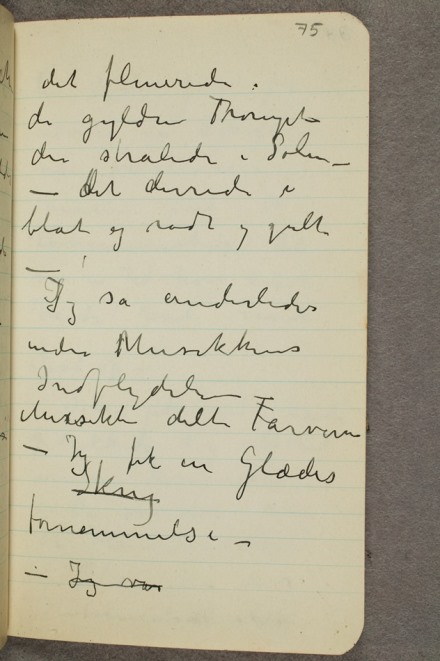 75
det flimrede.
de gyldne Trompet
der strålede i Solen –
– det dirrede i
blåt og rødt og gult
–
Jeg så anderledes
under Musikkens
Indflydelse –
Musikken delte Farverne
– Jeg fik en Glædes
Skrig
fornemmelse –
– Jeg var